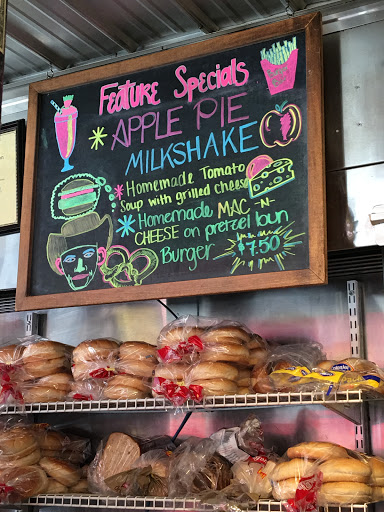 Feature Specials
*APPLE PIE
MILKSHAKE
*Homemade Tomato
Soup with grilled cheese
*Homemade MAC -N-
CHEESE on pretzel bun
Burger $7.50